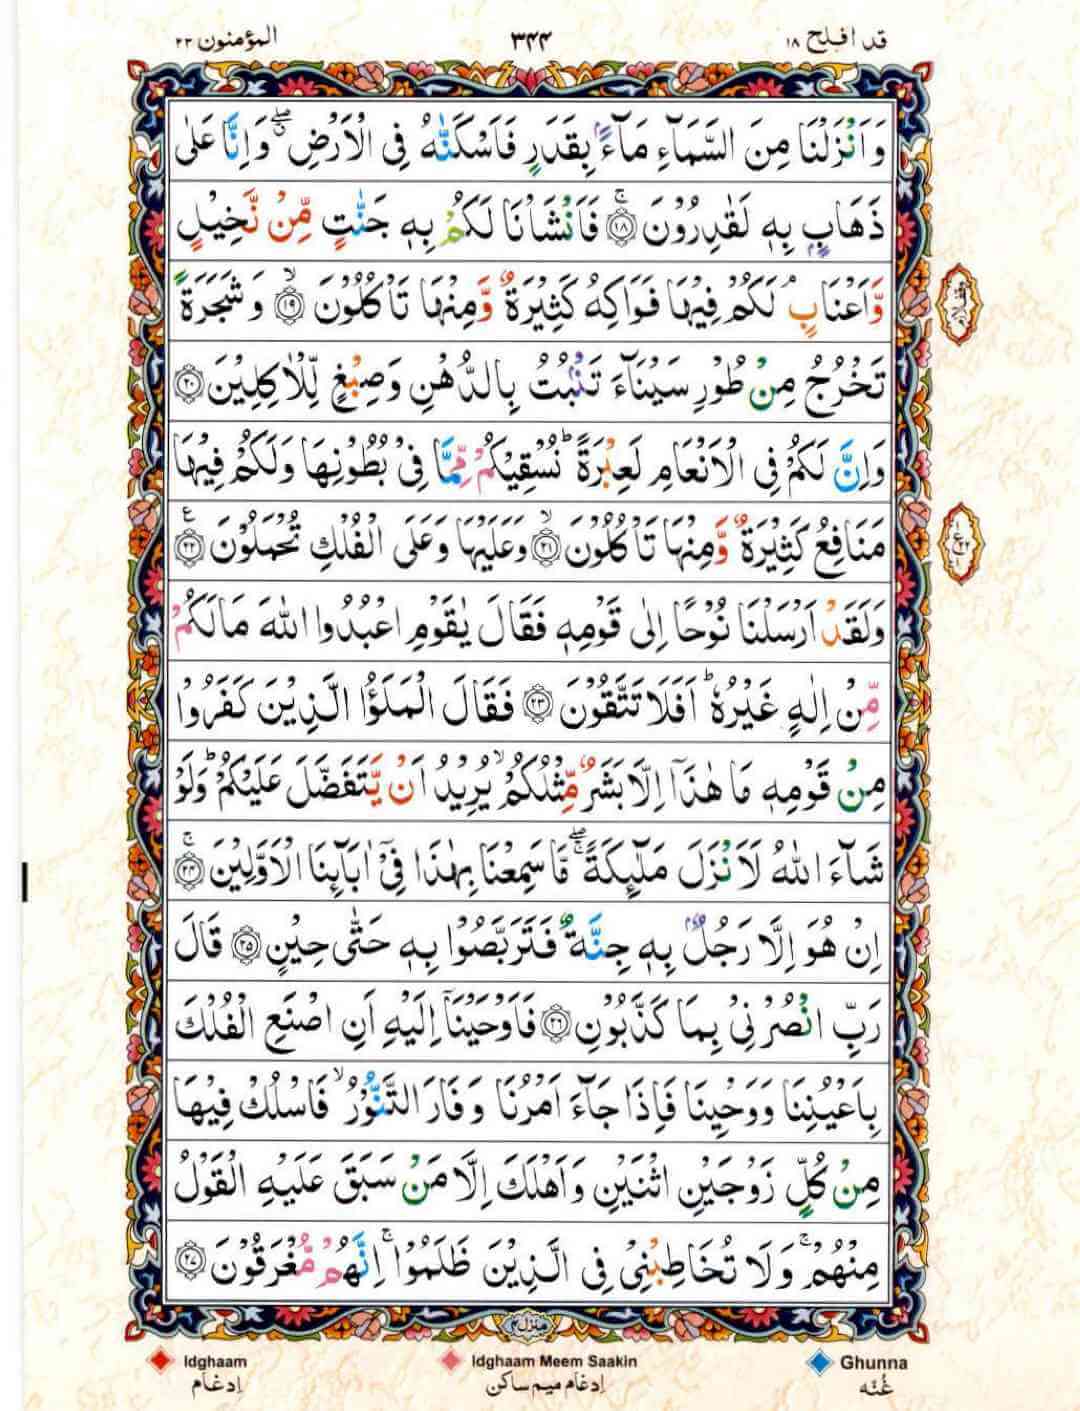 قد افلح ۱۸
۳۴۴
المؤمنون ۲۳
وَاَنْزَلْنَا مِنَ السَّمَآءِ مَآءًۢ بِقَدَرٍ فَاَسْكَنّٰهُ فِی الْاَرْضِ ۖۗ وَاِنَّا عَلٰی
ذَهَابٍۭ بِهٖ لَقٰدِرُوْنَ ۚ﴿۱۸﴾ فَاَنْشَاْنَا لَكُمْ بِهٖ جَنّٰتٍ مِّنْ نَّخِیْلٍ
وَّاَعْنَابٍ ۘ لَكُمْ فِیْهَا فَوَاكِهُ كَثِیْرَةٌ وَّمِنْهَا تَاْكُلُوْنَ ۙ﴿۱۹﴾ وَ شَجَرَةً
وقف لازم
تَخْرُجُ مِنْ طُوْرِ سَیْنَآءَ تَنْۢبُتُ بِالدُّهْنِ وَصِبْغٍ لِّلْاٰكِلِیْنَ ﴿۲۰﴾
وَاِنَّ لَكُمْ فِی الْاَنْعَامِ لَعِبْرَةً ؕ نُسْقِیْكُمْ مِّمَّا فِیْ بُطُوْنِهَا وَلَكُمْ فِیْهَا
مَنَافِعُ كَثِیْرَةٌ وَّمِنْهَا تَاْكُلُوْنَ ۙ﴿۲۱﴾ وَعَلَیْهَا وَعَلَی الْفُلْكِ تُحْمَلُوْنَ ﴿۲۲﴾ع
وَلَقَدْ اَرْسَلْنَا نُوْحًا اِلٰی قَوْمِهٖ فَقَالَ یٰقَوْمِ اعْبُدُوا اللّٰهَ مَا لَكُمْ
مِّنْ اِلٰهٍ غَیْرُهٗ ؕ اَفَلَا تَتَّقُوْنَ ﴿۲۳﴾ فَقَالَ الْمَلَؤُا الَّذِیْنَ كَفَرُوْا
مِنْ قَوْمِهٖ مَا هٰذَاۤ اِلَّا بَشَرٌ مِّثْلُكُمْ ۙ یُرِیْدُ اَنْ یَّتَفَضَّلَ عَلَیْكُمْ ؕ وَلَوْ
شَآءَ اللّٰهُ لَاَنْزَلَ مَلٰٓىِٕكَةً ۖۚ مَّا سَمِعْنَا بِهٰذَا فِیْۤ اٰبَآىِٕنَا الْاَوَّلِیْنَ ۚ﴿۲۴﴾
اِنْ هُوَ اِلَّا رَجُلٌۢ بِهٖ جِنَّةٌ فَتَرَبَّصُوْا بِهٖ حَتّٰی حِیْنٍ ﴿۲۵﴾ قَالَ
رَبِّ انْصُرْنِیْ بِمَا كَذَّبُوْنِ ﴿۲۶﴾ فَاَوْحَیْنَاۤ اِلَیْهِ اَنِ اصْنَعِ الْفُلْكَ
بِاَعْیُنِنَا وَوَحْیِنَا فَاِذَا جَآءَ اَمْرُنَا وَفَارَ التَّنُّوْرُ ۙ فَاسْلُكْ فِیْهَا
مِنْ كُلٍّ زَوْجَیْنِ اثْنَیْنِ وَاَهْلَكَ اِلَّا مَنْ سَبَقَ عَلَیْهِ الْقَوْلُ
مِنْهُمْ ۚ وَلَا تُخَاطِبْنِیْ فِی الَّذِیْنَ ظَلَمُوْا ۚ اِنَّهُمْ مُّغْرَقُوْنَ ﴿۲۷﴾
منزل ۴
Idghaam
Idghaam Meem Saakin
Ghunna
اِدغام
اِدغام میم ساکن
غُنّه